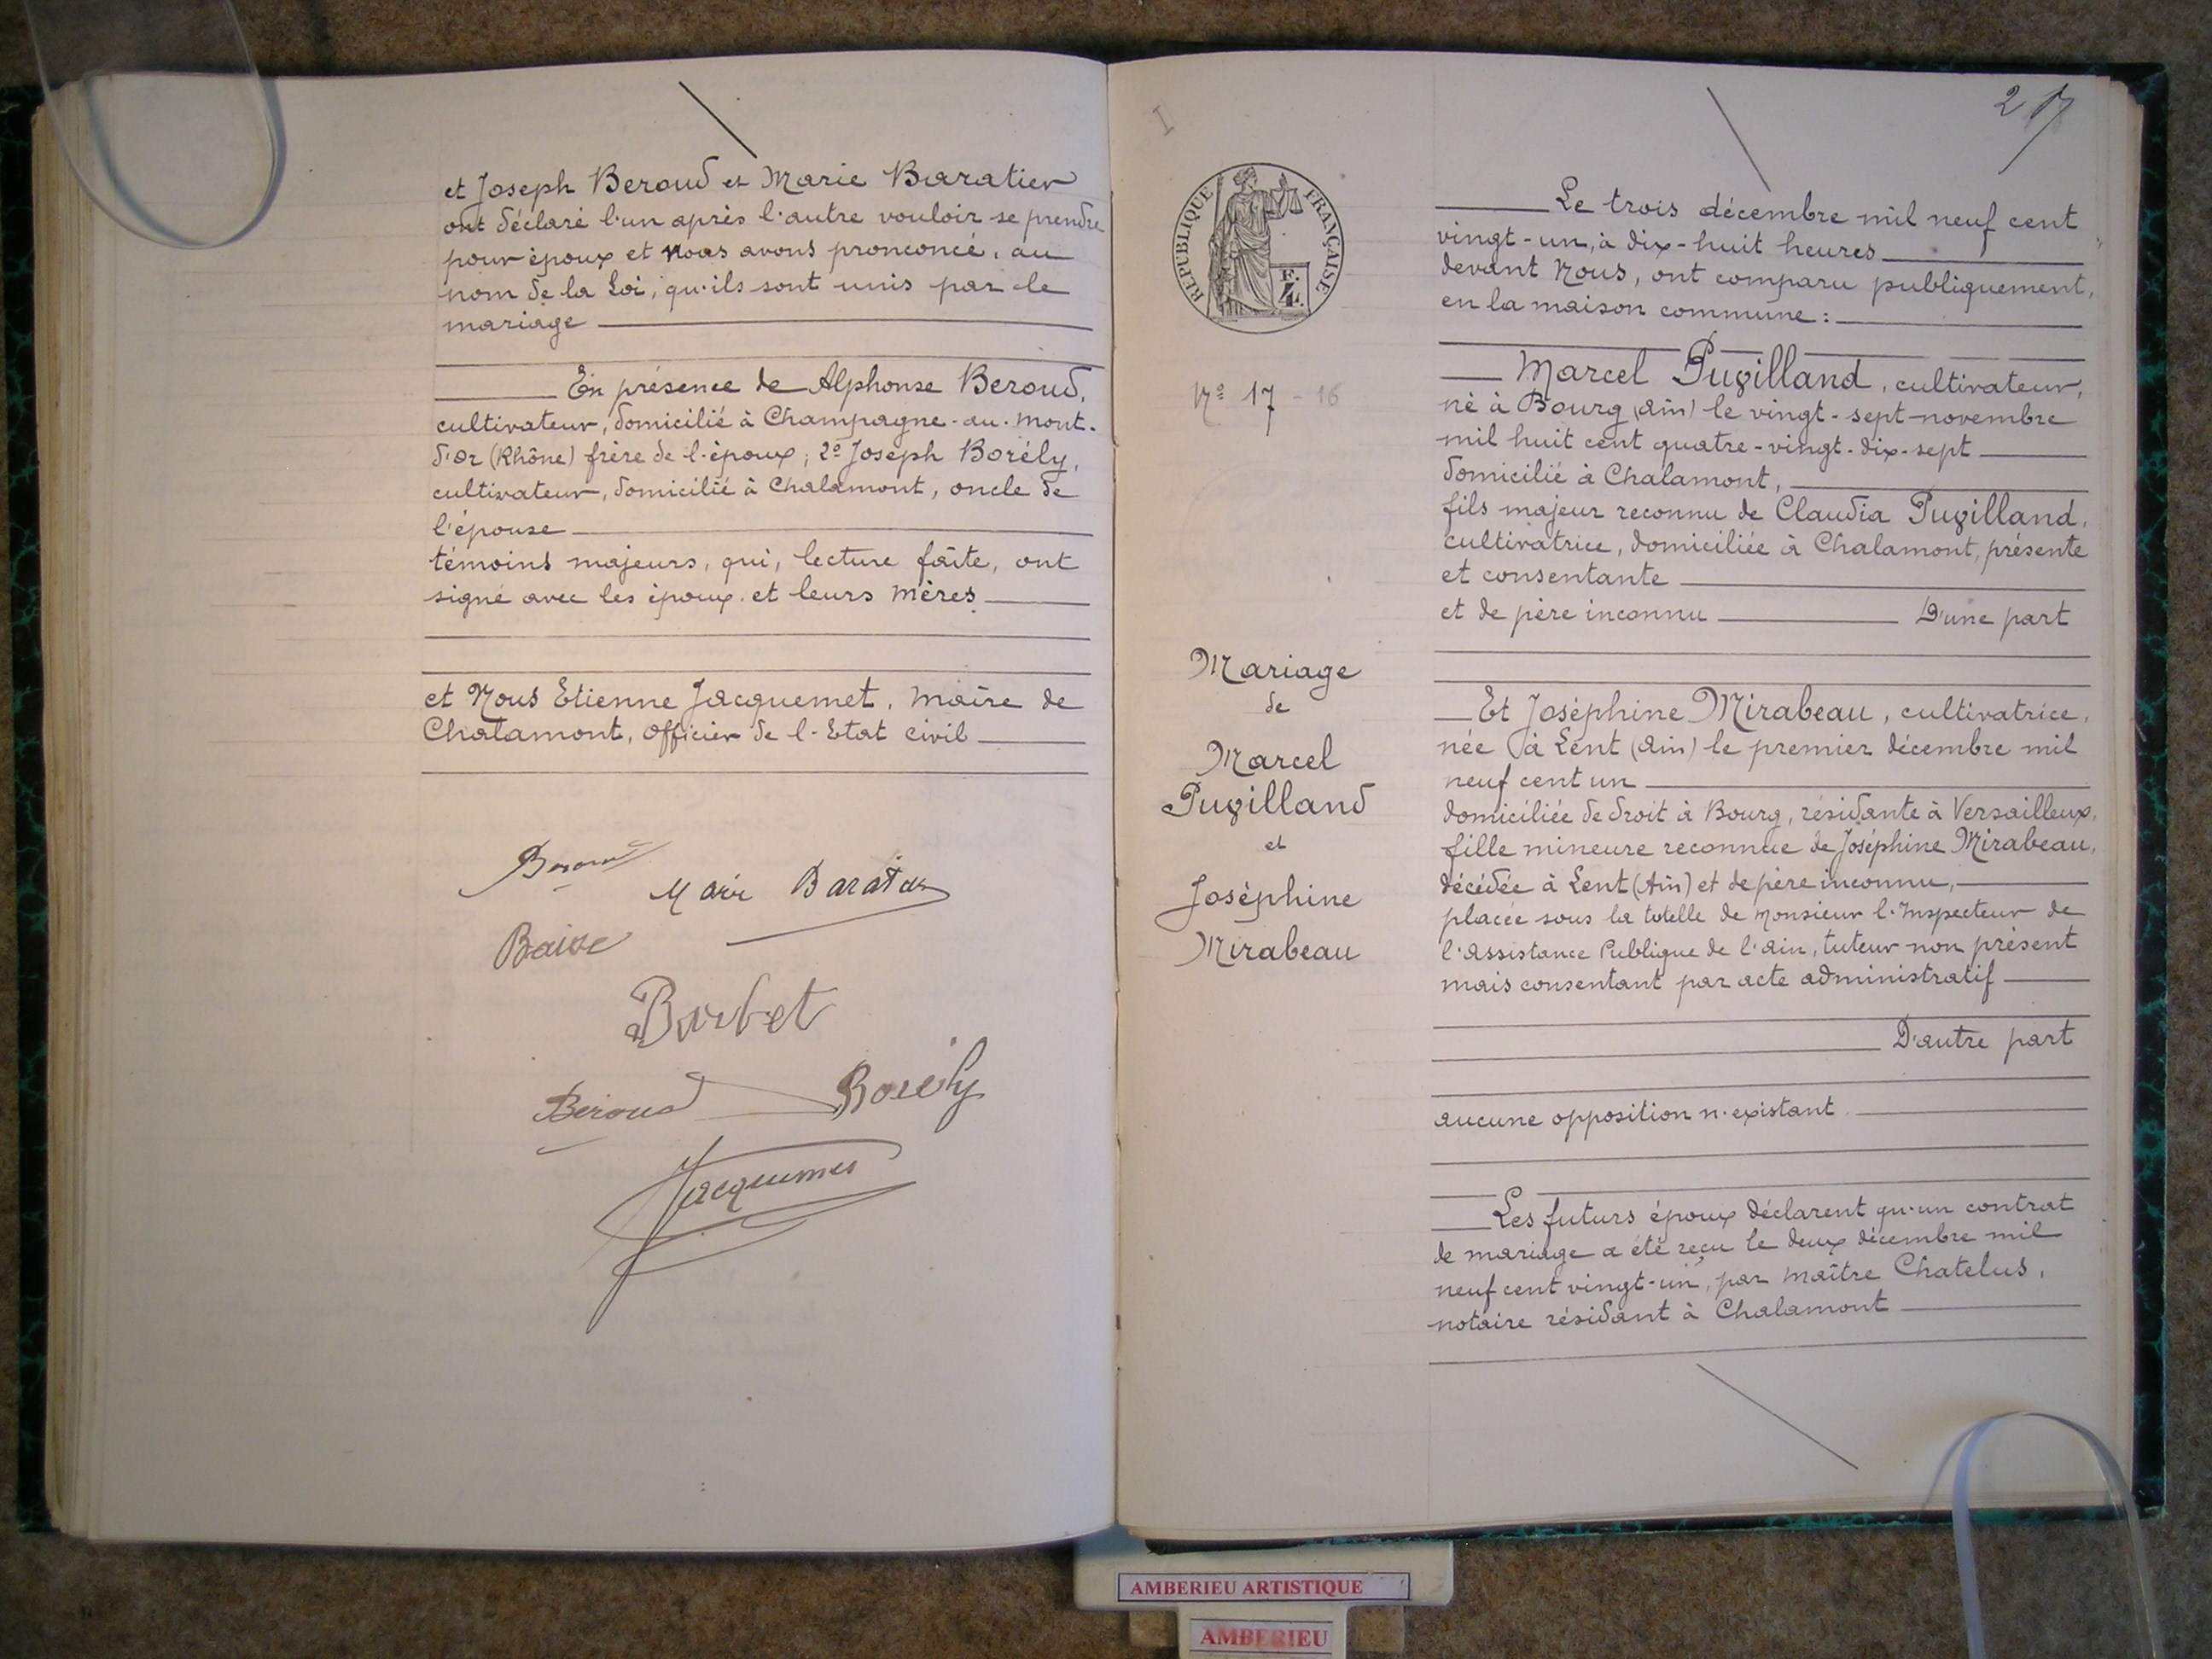 et Joseph Beroud et Marie Baratier
ont déclaré l'un après l'autre vouloir se prendre
pour époux et nous avons prononcé, au
nom de la Loi, qu'ils sont unis par le
mariage
En présence de Alphonse Beroud,
cultivateur, domicilié à Champagne-au-Mont-
d'Or (Rhône) frère de l'époux; 2º Joseph Borély,
cultivateur, domicilié à Chalamont, oncle de
l'épouse
témoins majeurs, qui, lecture faite, ont
signé avec les époux et leurs mères
et Nous Etienne Jacquemet, maire de
Chalamont, officier de l'Etat civil
Marie Baratier
Barbet
Beroud
Borély
Jacquemet
RÉPUBLIQUE FRANÇAISE
Nº 17 - 16
Mariage
de
Marcel
Puvilland
et
Joséphine
Mirabeau
Le trois décembre mil neuf cent
vingt-un, à dix-huit heures
devant Nous, ont comparu publiquement,
en la maison commune:
Marcel Puvilland, cultivateur,
né à Bourg (Ain) le vingt-sept novembre
mil huit cent quatre-vingt-dix-sept
domicilié à Chalamont,
fils majeur reconnu de Claudia Puvilland,
cultivatrice, domiciliée à Chalamont, présente
et consentante
et de père inconnu D'une part
Et Joséphine Mirabeau, cultivatrice,
née à Lent (Ain) le premier décembre mil
neuf cent un
domiciliée de droit à Bourg, résidante à Versailleux,
fille mineure reconnue de Joséphine Mirabeau,
décédée à Lent (Ain) et de père inconnu,
placée sous la tutelle de Monsieur l'Inspecteur de
l'assistance Publique de l'Ain, tuteur non présent
mais consentant par acte administratif
D'autre part
aucune opposition n'existant
Les futurs époux déclarent qu'un contrat
de mariage a été reçu le deux décembre mil
neuf cent vingt-un, par maître Chatelus,
notaire résidant à Chalamont
AMBERIEU ARTISTIQUE
AMBERIEU